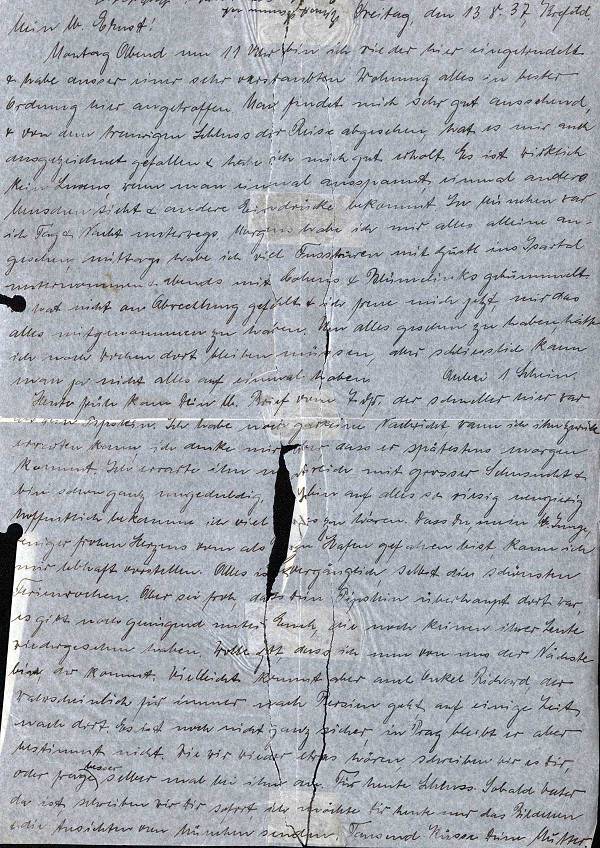 Freitag den 13.8.37 Krefeld
Mein lb. Ernst!
Montag Abend um 11 Uhr bin ich wieder hier eingetrudelt
& habe ausser einer sehr verstaubten Wohnung alles in bester
Ordnung hier angetroffen. Man findet mich sehr gut aussehend,
& von dem traurigen Schluss der Reise abgesehen, hat es mir auch
ausgezeichnet gefallen & habe ich mich gut erholt. Es ist wirklich
kein Luxus wenn man einmal ausspannt, einmal andere
Menschen sieht & andere Eindrücke bekommt. In München war
ich Tag & Nacht unterwegs. Morgens habe ich mir alles alleine an-
gesehen, mittags habe ich viel Fusstouren mit ins Isartal
unternommen & abends mit & gebummelt
hat nicht an Abwechslung gefehlt & ich freue mich jetzt, nur das
alles mitgenommen zu haben. Um alles gesehen zu haben hätte
ich noch Wochen dort bleiben müssen, aber schliesslich kann
man ja nicht alles auf einmal haben. Anbei 1 Schein.
Heute früh kam Dein lb. Brief vom der schneller hier war
Ich habe noch gar keine Nachricht wann ich ihn zurück
erwarten kann, ich denke mir aber dass er spätestens morgen
kommt. Ich erwarte ihn mit grosser Sehnsucht &
bin schon ganz ungeduldig, bin auf alles so riesig neugierig
Hoffentlich bekomme ich viel zu hören. Dass Du mein lb. Junge,
weniger frohen Herzens vom als zum Hafen gefahren bist kann ich
mir lebhaft vorstellen. Alles ist vergänglich, selbst die schönsten
Ferienwochen. Aber sei froh, dass Dein überhaupt dort war,
es gibt noch genügend unter Euch, die noch keinen ihrer Leute
wiedergesehen haben. Wolle Gott dass ich nun von uns der Nächste
bin der kommt. Vielleicht kommt aber auch Onkel Richard der
wahrscheinlich für immer nach geht auf einige Zeit
nach dort. Es ist noch nicht ganz sicher, in Prag bleibt er aber
bestimmt nicht. Wie wir wieder etwas hören schreiben wir es Dir,
oder frage besser selber mal bei ihm an. Für heute Schluss. Sobald Vater
da ist schreiben wir Dir sofort ich möchte Dir heute nur das Bildchen
& die Ansichten von München senden. Tausend Küsse Deine Mutter